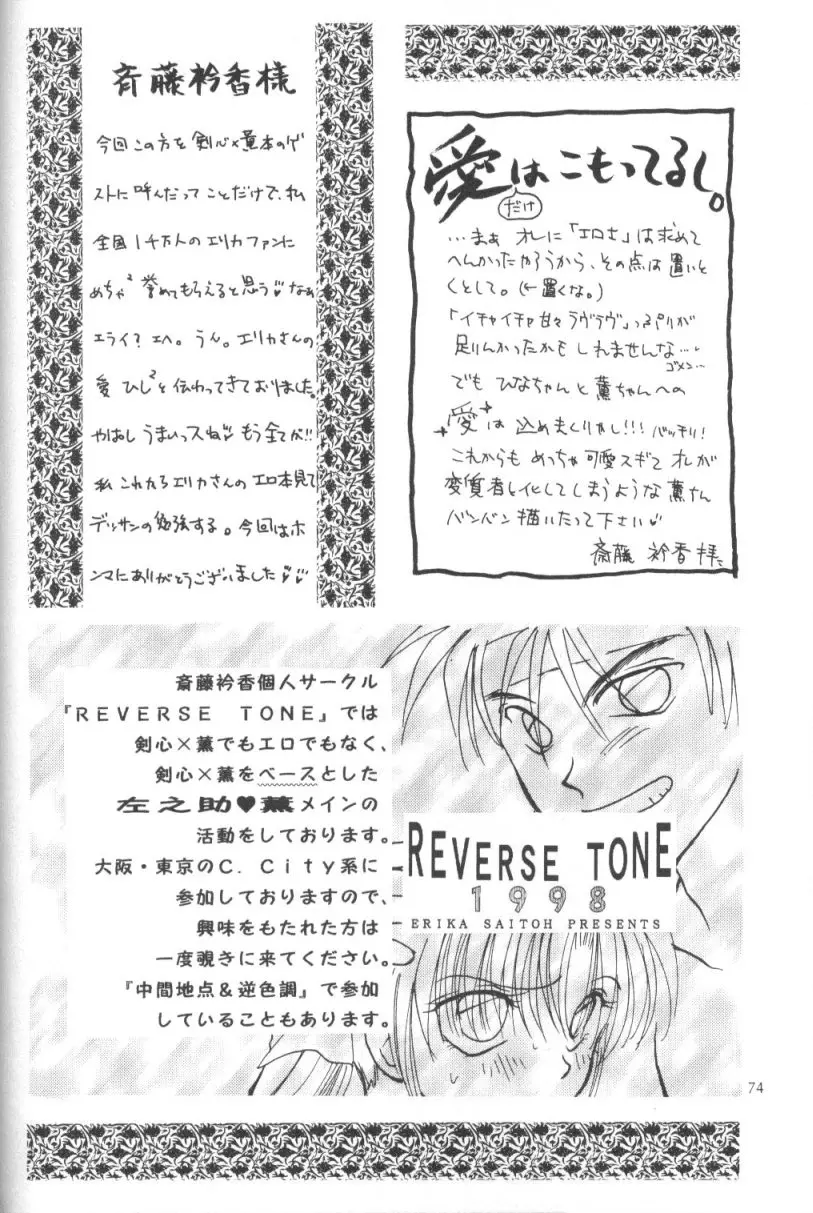 斉藤衿香様
今回この方を剣心×薫本のゲ
ストに呼んだってことだけで、私
全国1千万人のエリカファンに
めちゃ²誉めてもらえると思う♡なぁ
エライ?エヘ。うん。エリカさんの
愛ひし²と伝わってきておりました。
やぱしうまいっスね♡もう全てが!!
私これからエリカさんのエロ本見て
デッサンの勉強する。今回はホ
ンマにありがとうございました♡♡
愛はこもってるし。
だけ
…まぁオレに「エロさ」は求めて
へんかったやろうから、その点は置いと
くとして。(←置くな。)
「イチャイチャ甘々ラヴラヴ」っぷりが
足りんかったかもしれませんな…
ゴメン…
でもひなちゃんと薫ちゃんへの
愛は込めまくりやし!!!バッチリ!
これからもめっちゃ可愛スギてオレが
変質者と化してしまうような薫さん
バンバン描いたって下さい♡
斎藤衿香拝
斎藤衿香個人サークル
『REVERSE TONE』では
剣心×薫でもエロでもなく、
剣心×薫をベースとした
左之助♥薫メインの
活動をしております。
大阪・東京のC.City系に
参加しておりますので、
興味をもたれた方は
一度覗きに来てください。
『中間地点&逆色調』で参加
していることもあります。
REVERSE TONE
1998
ERIKA SAITOH PRESENTS
74